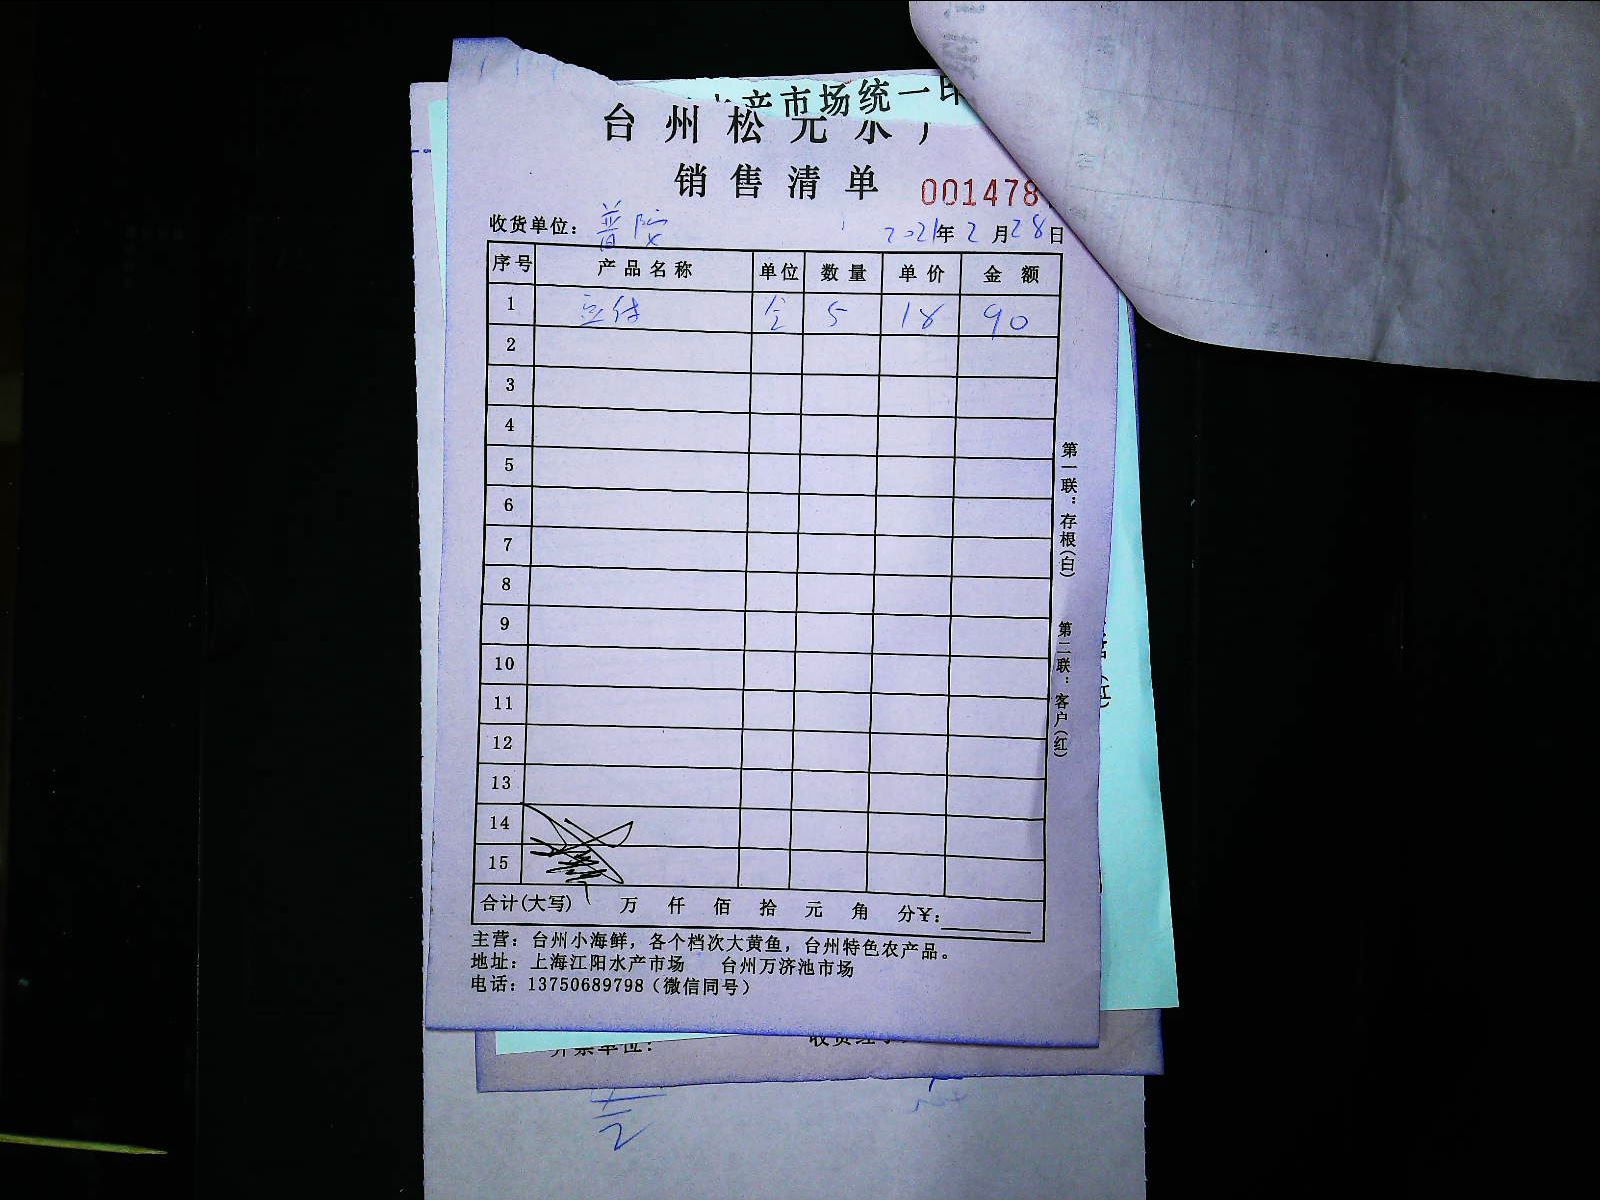 产市场统一印
台州松元水产
销售清单
001478
收货单位：普陀 2021年2月28日
序号 产品名称 单位 数量 单价 金额
1 5 18 90
2
3
4
5
6
7
8
9
10
11
12
13
14
15
合计(大写) 万 仟 佰 拾 元 角 分¥：
主营：台州小海鲜，各个档次大黄鱼，台州特色农产品。
地址：上海江阳水产市场 台州万济池市场
电话：13750689798（微信同号）
第一联：存根(白)
第二联：客户(红)
开票单位：